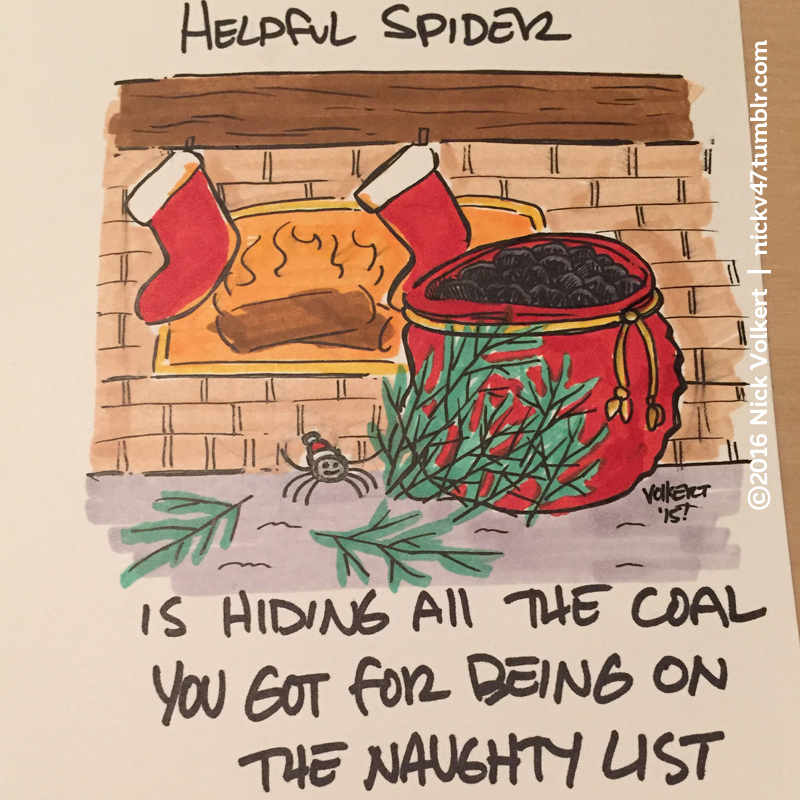 HELPFUL SPIDER
VOLKERT
'15!
IS HIDING All THE COAL
YOU GOT FOR BEING ON
THE NAUGHTY LIST
©2016 Nick Volkert | nickv47.tumblr.com